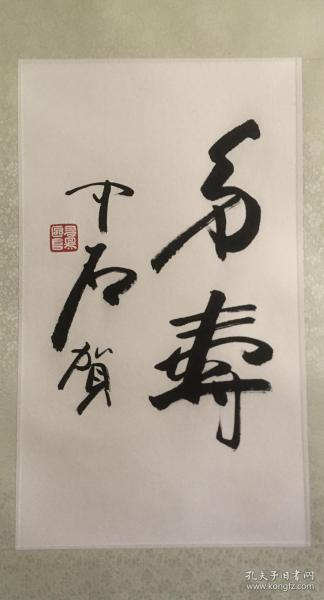 多壽
中石賀
孔夫子旧书网
www.kongfz.com